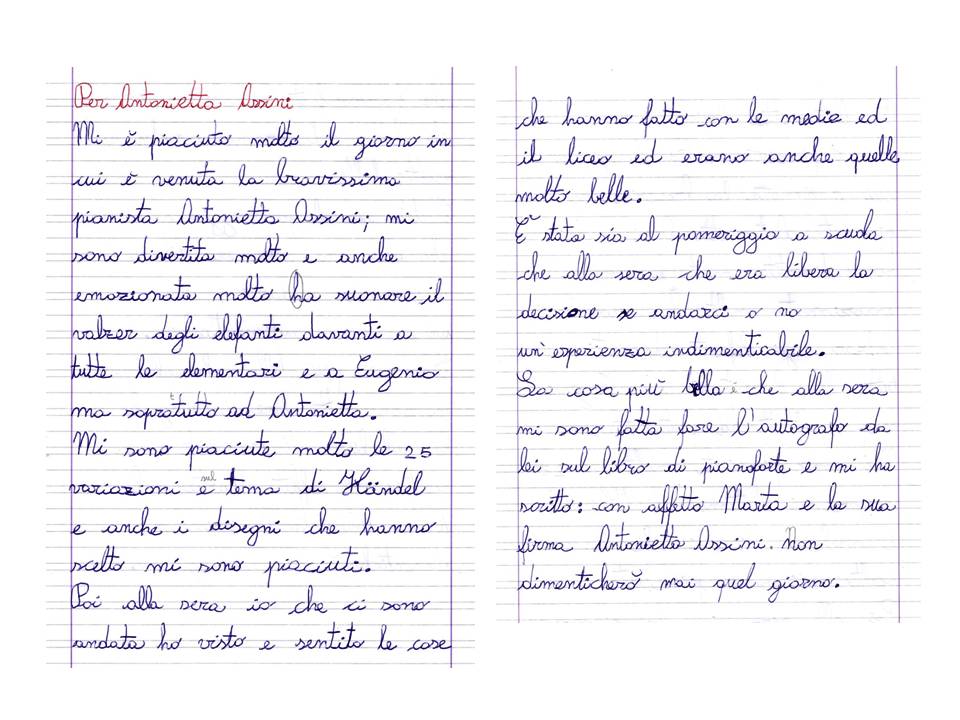 Per Antonietta Assini
Mi è piaciuto molto il giorno in
cui è venuta la bravissima
pianista Antonietta Assini; mi
sono divertita molto e anche
emozionata molto ha suonare il
valzer degli elefanti davanti a
tutte le elementari e a Eugenio
ma sopratutto ad Antonietta.
Mi sono piaciute molto le 25
variazioni e sul tema di Händel
e anche i disegni che hanno
scelto mi sono piaciuti.
Poi alla sera io che ci sono
andata ho visto e sentito le cose
che hanno fatto con le medie ed
il liceo ed erano anche quelle
molto belle.
È stata sia al pomeriggio a scuola
che alla sera che era libera la
decisione se andarci o no
un'esperienza indimenticabile.
La cosa più bella è che alla sera
mi sono fatta fare l'autografo da
lei sul libro di pianoforte e mi ha
scritto: con affetto Marta e la sua
firma Antonietta Assini. Non
dimenticherò mai quel giorno.